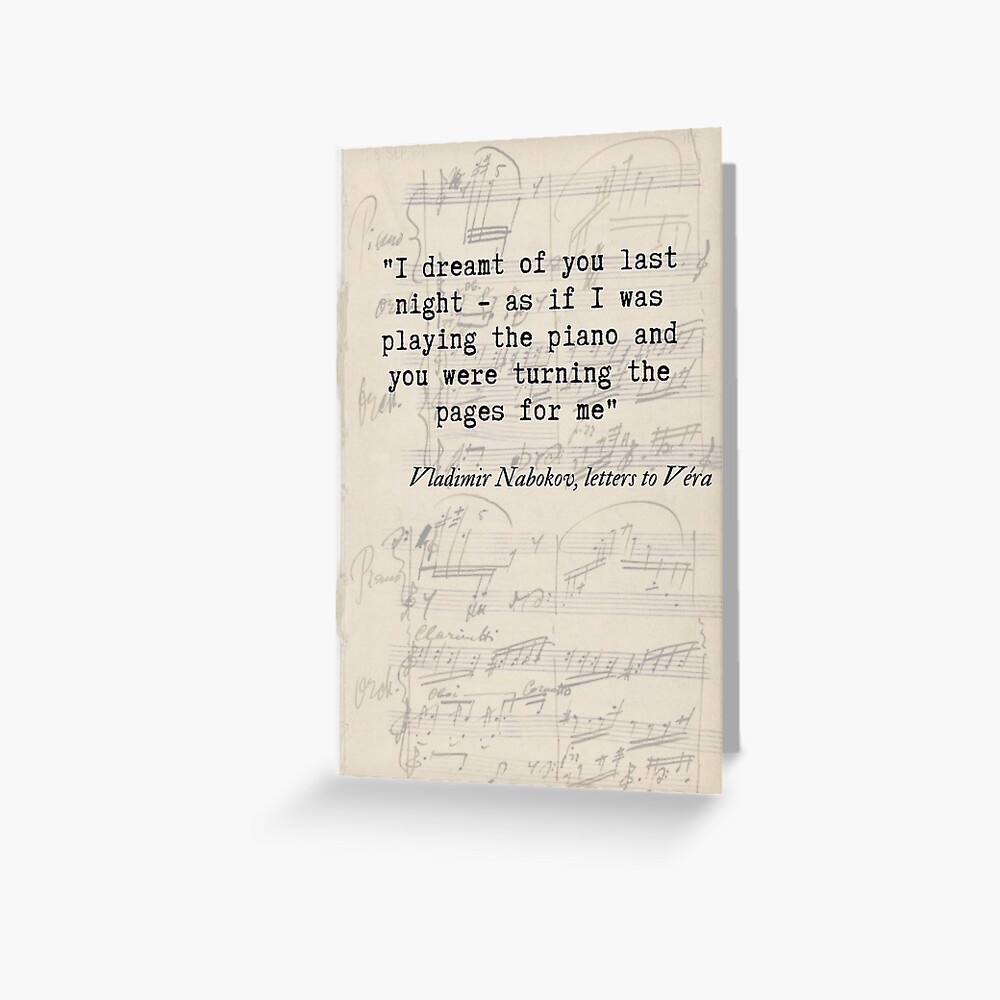 Piano
"I dreamt of you last
night - as if I was
playing the piano and
you were turning the
pages for me"
Orch.
Vladimir Nabokov, letters to Véra
5
Piano
Clarinetti
Orch.
Oboi